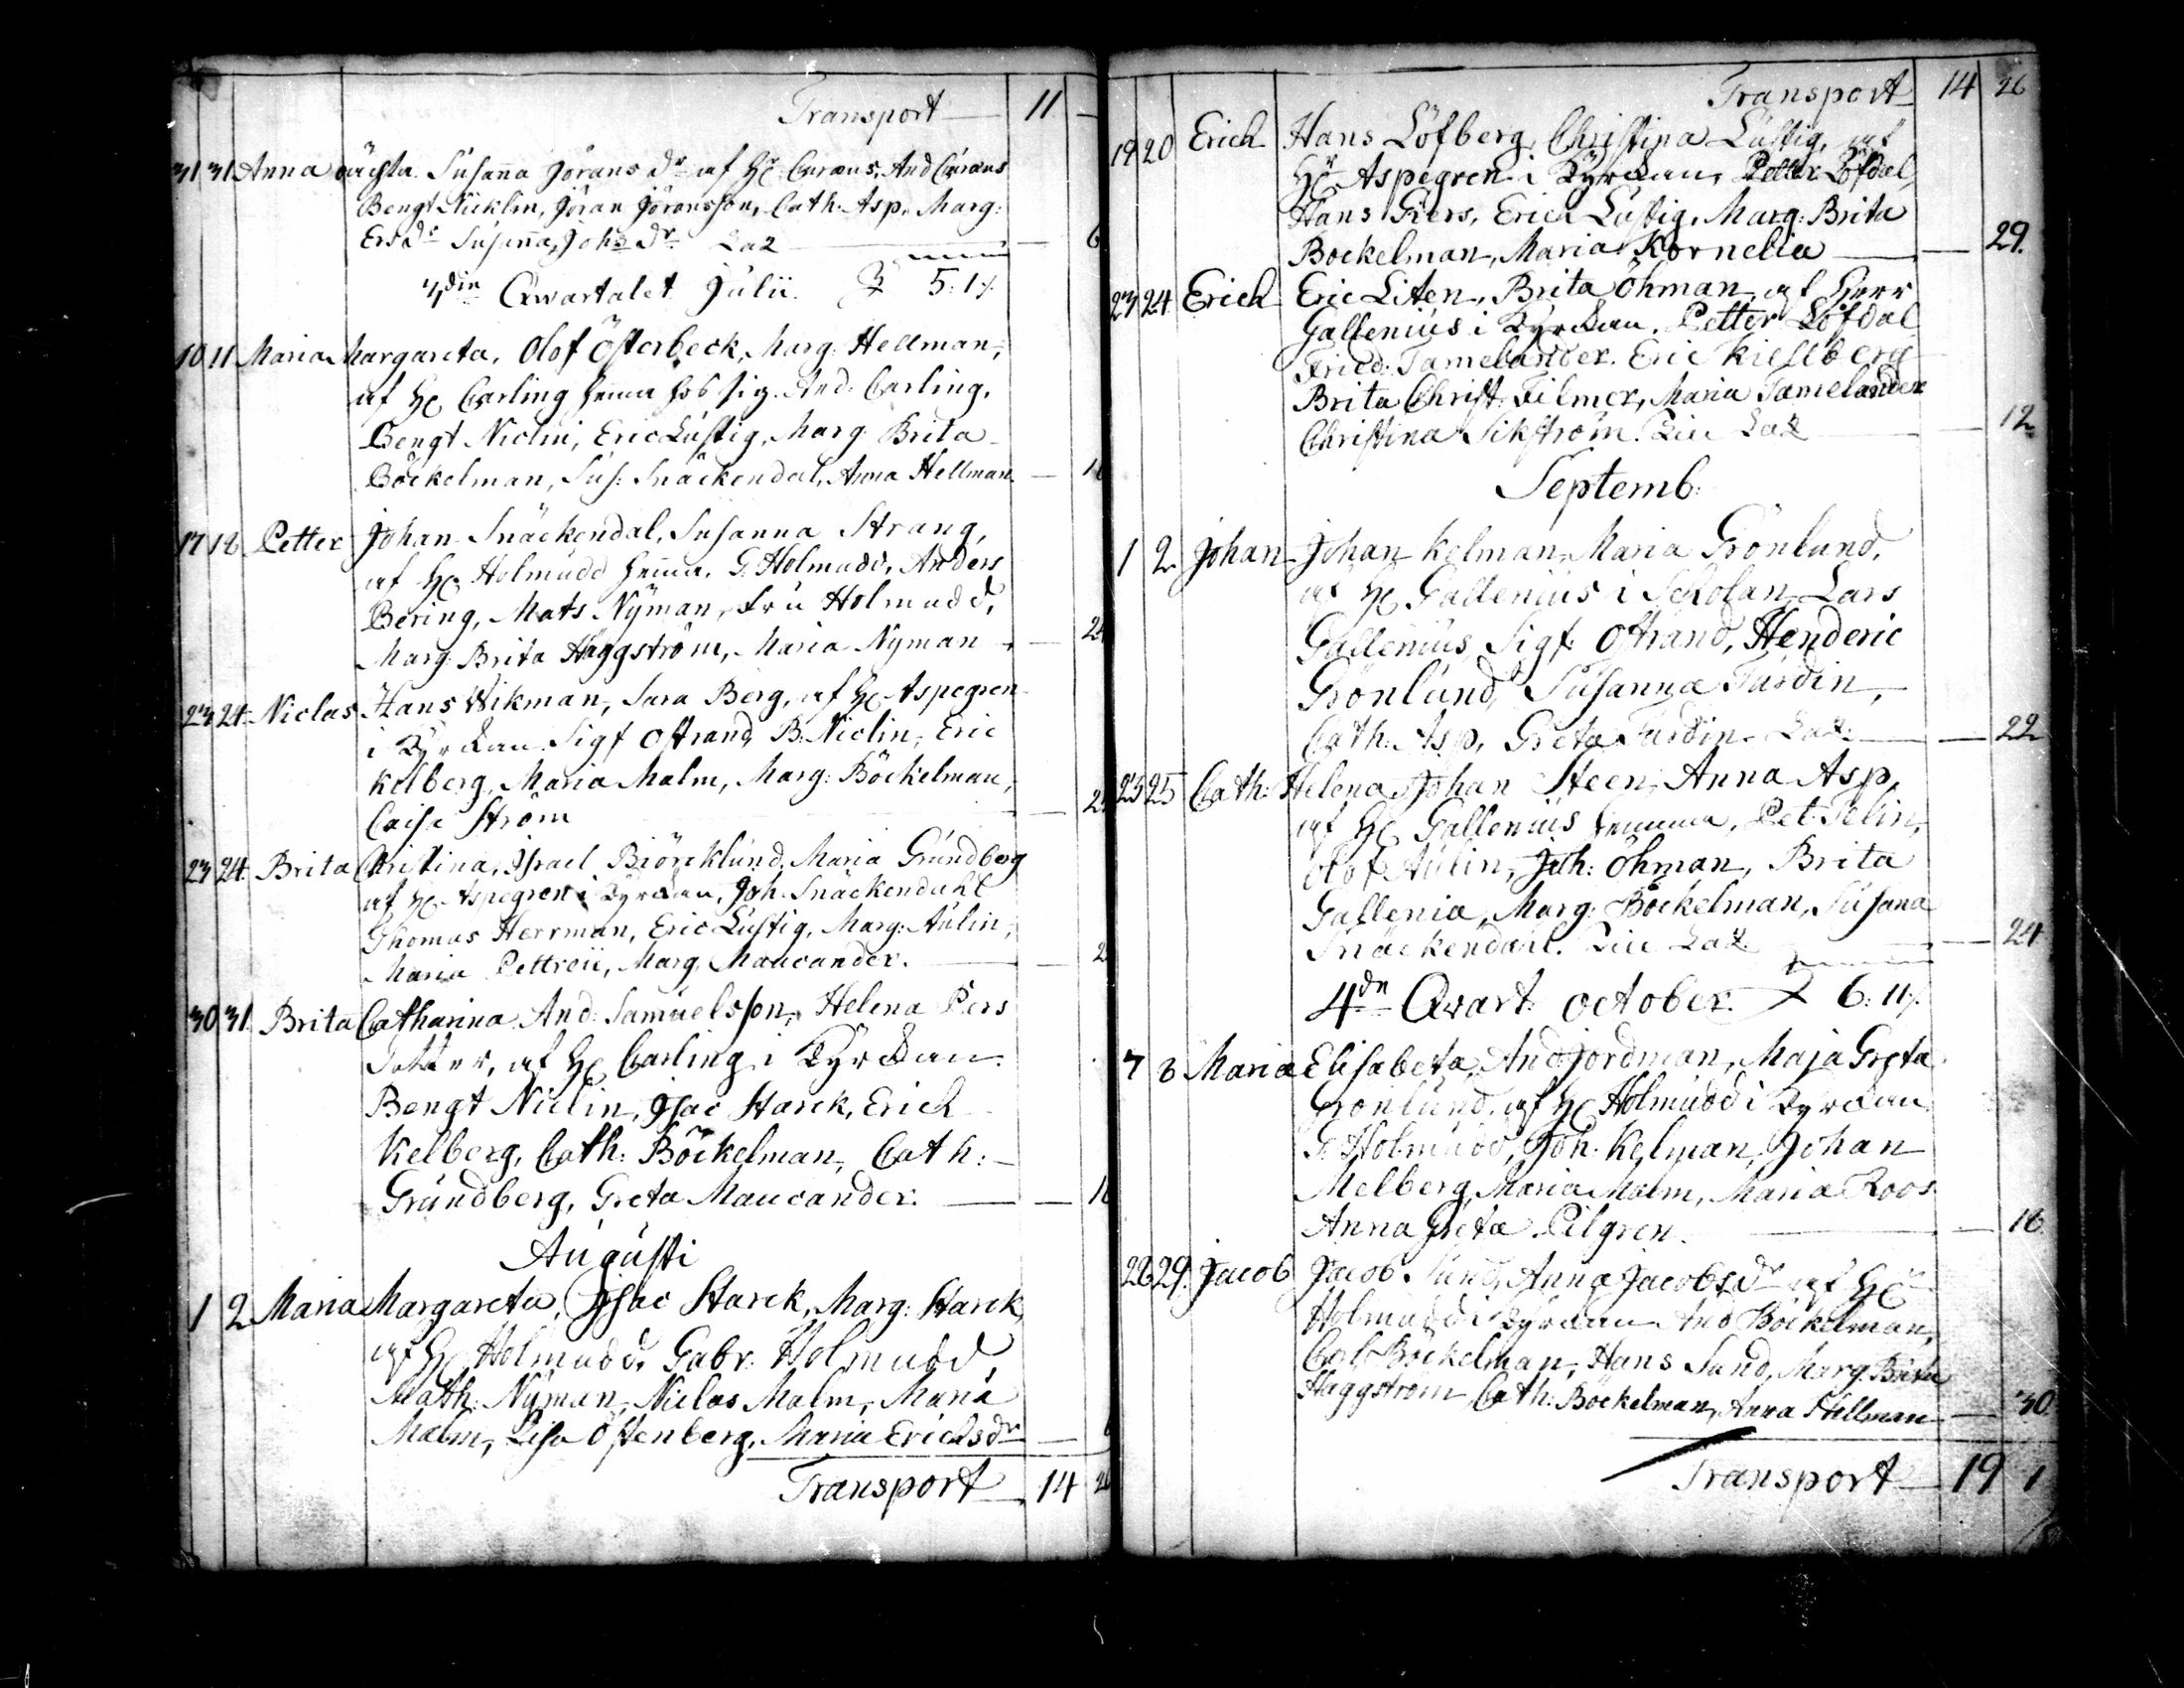 Transport 11 -
31 31 Anna oächta. Susanna Jörans dr af Hr Curæus, And Curæus
Bengt Nicklin, Jöran Jöransson, Cath: Asp, Marg:
Ers dr Susanna Joh dr — 6
Qwartalet Julii 5:1
10 11 Maria Margareta, Olof Österbeck, Marg: Hellman,
af Hr Carling hema hos sig. And: Carling,
Bengt Niclin, Eric Lustig, Marg: Brita
Böckelman, Sus: Snäckendal, Anna Hellman —
17 18 Petter Johan Snäckendal, Susanna Strang,
af Hr Holmudd hema. G. Holmudd, Anders
Bering, Mats Nyman, Fru Holmudd,
Marg: Brita Häggström, Maria Nyman — 24
23 24 Niclas Hans Wikman, Sara Berg, af Hr Aspegren
i Kyrckan. Sigf Ostrand, B: Niclin, Eric
Kelberg, Maria Malm, Marg: Böckelman,
Caisa Ström —
23 24 Brita Christina, Israel Biörcklund, Maria Grundberg
af Hr Aspegren i Kyrckan, Joh. Snäckendahl
Thomas Herrman, Eric Lustig, Marg: Aulin,
Maria Pettreii, Marg: Maucander. —
30 31. Brita Catharina. And: Samuelsson, Helena Pers
Dotter, af Hr Carling i Kyrckan.
Bengt Niclin, Isac Starck, Erich
Kelberg, Cath: Böckelman, Cath:
Grundberg, Greta Maucander. —
Augusti
1 2 Maria Margareta, Isac Starck, Marg: Starck,
af Hr Holmudd. Gabr: Holmudd,
Math: Nyman, Niclas Malm, Maria
Malm, Lisa Östenberg, Maria Erichsdr —
Transport 14 26
Transport 14 26
19 20 Erich Hans Löfberg, Christina Lustig, af
Hr Aspegren i Kyrckan, Petter Löfdal,
Hans Piers, Erich Lustig, Marg: Brita
Bockelman, Maria Kornelia — 29.
23 24 Erich Eric Liten, Brita Öhman, af Herr
Gallenius i Kyrckan. Petter Löfdal
Fried: Tamelander. Eric Kiellberg
Brita Christ: Filmer, Maria Tamelander
Christina Sikström. — 12
Septemb:
1 2 Johan Johan Kelman, Maria Grönlund,
af Hr Gallenius i Scholan, Lars
Gallenius, Sigf: Ostrand, Henderic
Grönlund, Susanna Turdin,
Cath: Asp, Greta Turdin. — 22
25 25 Cath: Helena, Johan Steen, Anna Asp,
af Hr Gallenius hemma, Pet: Telin,
Olof Aulin, Joh: Öhman, Brita
Gallenia, Marg: Böckelman, Susana
Snäckendahl. — 24
4dn Qvart: October. 6:11
7 8 Maria Elisabeta, And Jordman, Maja Greta
Grönlund, af Hr Holmudd i Kyrckan
G: Holmudd, Joh. Kelman, Johan
Melberg, Maria Malm, Maria Roos
Anna Greta Pilgren. — 16
28 29. Jacob Jacob Sund, Anna Jacobsdr af Hr
Holmudd i Kyrckan And Böckelman,
Carl Böckelman, Hans Sund, Marg: Brita
Häggström, Cath: Böckelman, Anna Hellman — 30.
Transport 19 1